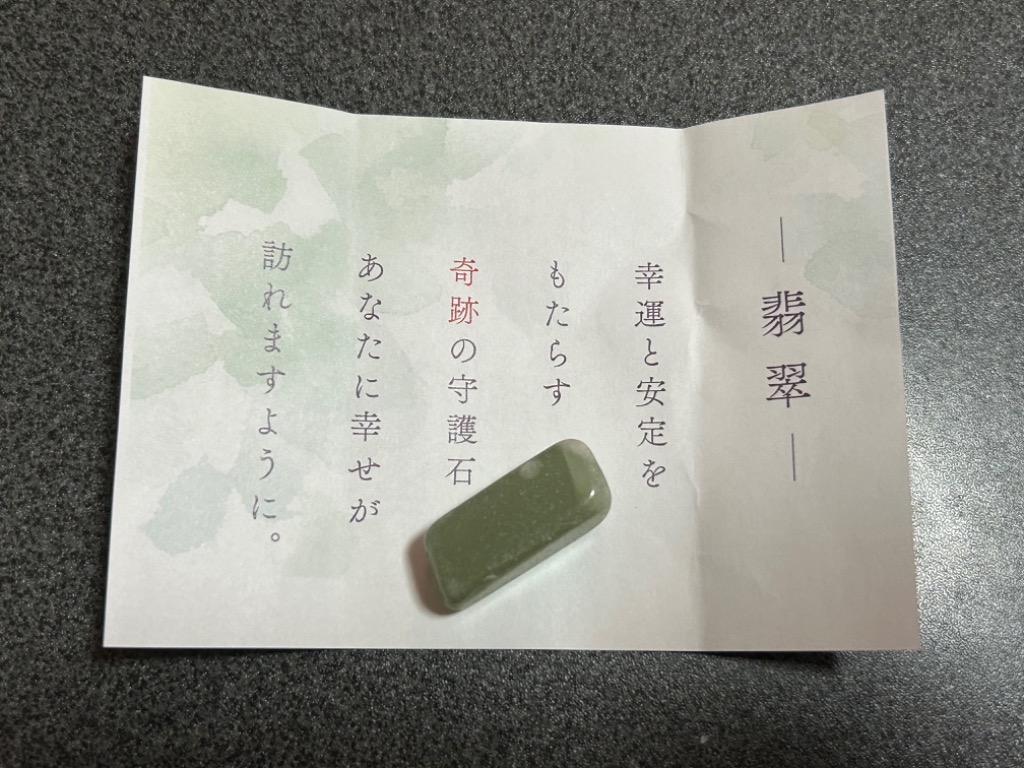 ― 翡翠 ―
幸運と安定を
もたらす
奇跡の守護石
あなたに幸せが
訪れますように。